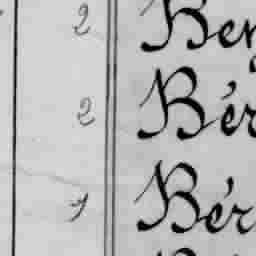 2 Ben
2 Bér
1 Bér